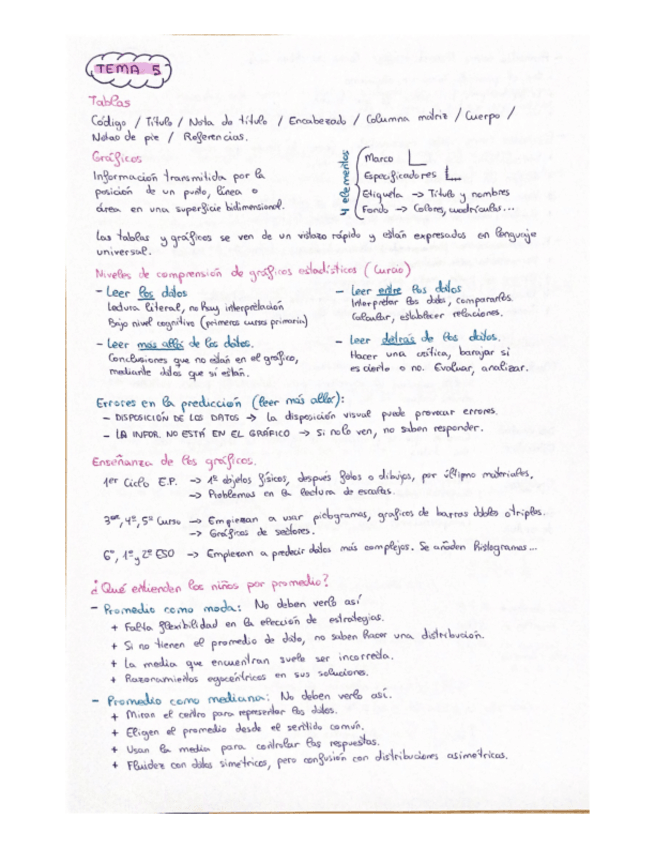 TEMA 5
Tablas
Código / Título / Nota de título / Encabezado / Columna matriz / Cuerpo /
Notas de pie / Referencias.
Gráficos
Información transmitida por la
posición de un punto, línea o
área en una superficie bidimensional.
4 elementos
Marco
Especificadores
Etiqueta → Título y nombres
Fondo → Colores, cuadrículas...
Las tablas y gráficos se ven de un vistazo rápido y están expresados en lenguaje
universal.
Niveles de comprensión de gráficos estadísticos (Curcio)
- Leer los datos
Lectura literal, no hay interpretación
Bajo nivel cognitivo (primeros cursos primaria)
- Leer entre los datos
Interpretar los datos, compararlos.
Calcular, establecer relaciones.
- Leer más allá de los datos.
Conclusiones que no están en el gráfico,
mediante datos que sí están.
- Leer detrás de los datos.
Hacer una crítica, barajar si
es cierto o no. Evaluar, analizar.
Errores en la predicción (leer más allá):
- DISPOSICIÓN DE LOS DATOS → La disposición visual puede provocar errores.
- LA INFOR. NO ESTÁ EN EL GRÁFICO → Si no lo ven, no saben responder.
Enseñanza de los gráficos.
1er Ciclo E.P. → 1º objetos físicos, después fotos o dibujos, por último materiales.
→ Problemas en la lectura de escalas.
3er, 4º, 5º Curso → Empiezan a usar pictogramas, graficos de barras dobles o triples.
→ Gráficos de sectores.
6º, 1º y 2º ESO → Empiezan a predecir datos más complejos. Se añaden histogramas...
¿Qué entienden los niños por promedio?
- Promedio como moda: No deben verlo así
+ Falta flexibilidad en la elección de estrategias.
+ Si no tienen el promedio de dato, no saben hacer una distribución.
+ La media que encuentran suele ser incorrecta.
+ Razonamientos egocéntricos en sus soluciones.
- Promedio como mediana: No deben verlo así.
+ Miran el centro para representar los datos.
+ Eligen el promedio desde el sentido común.
+ Usan la media para controlar las respuestas.
+ Fluidez con datos simétricos, pero confusión con distribuciones asimétricas.